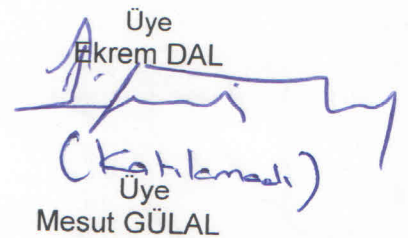 Üye
Ekrem DAL
(Katılamadı)
Üye
Mesut GÜLAL